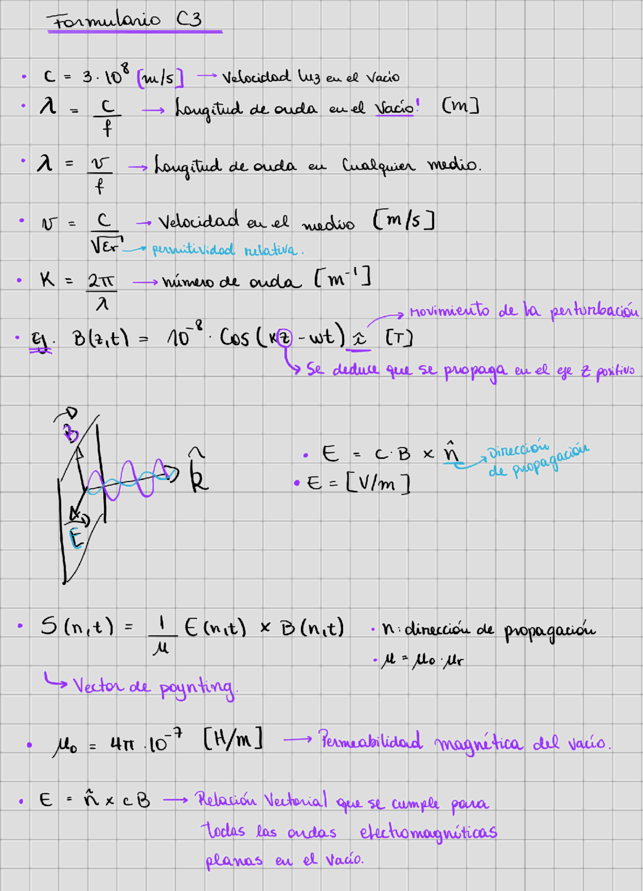 Formulario C3
• C = 3·10⁸ [m/s] → Velocidad luz en el vacio
• λ = c/f → Longitud de onda en el vacío! [m]
• λ = v/f → Longitud de onda en Cualquier medio.
• v = C/√εr → Velocidad en el medio [m/s]
→ permitividad relativa.
• K = 2π/λ → número de onda [m⁻¹]
→ Movimiento de la perturbación
• Ej. B(z,t) = 10⁻⁸ · Cos(kz - wt) x̂ [T]
→ Se deduce que se propaga en el eje z positivo
B
k̂
E
• E = c·B × n̂ → Dirección de propagación
• E = [V/m]
• S(n,t) = 1/μ E(n,t) × B(n,t) • n: dirección de propagación
• μ = μ₀ · μr
→ Vector de poynting.
• μ₀ = 4π·10⁻⁷ [H/m] → Permeabilidad magnética del vacío.
• E = n̂ × cB → Relación Vectorial que se cumple para
todas las ondas electromagnéticas
planas en el vacío.